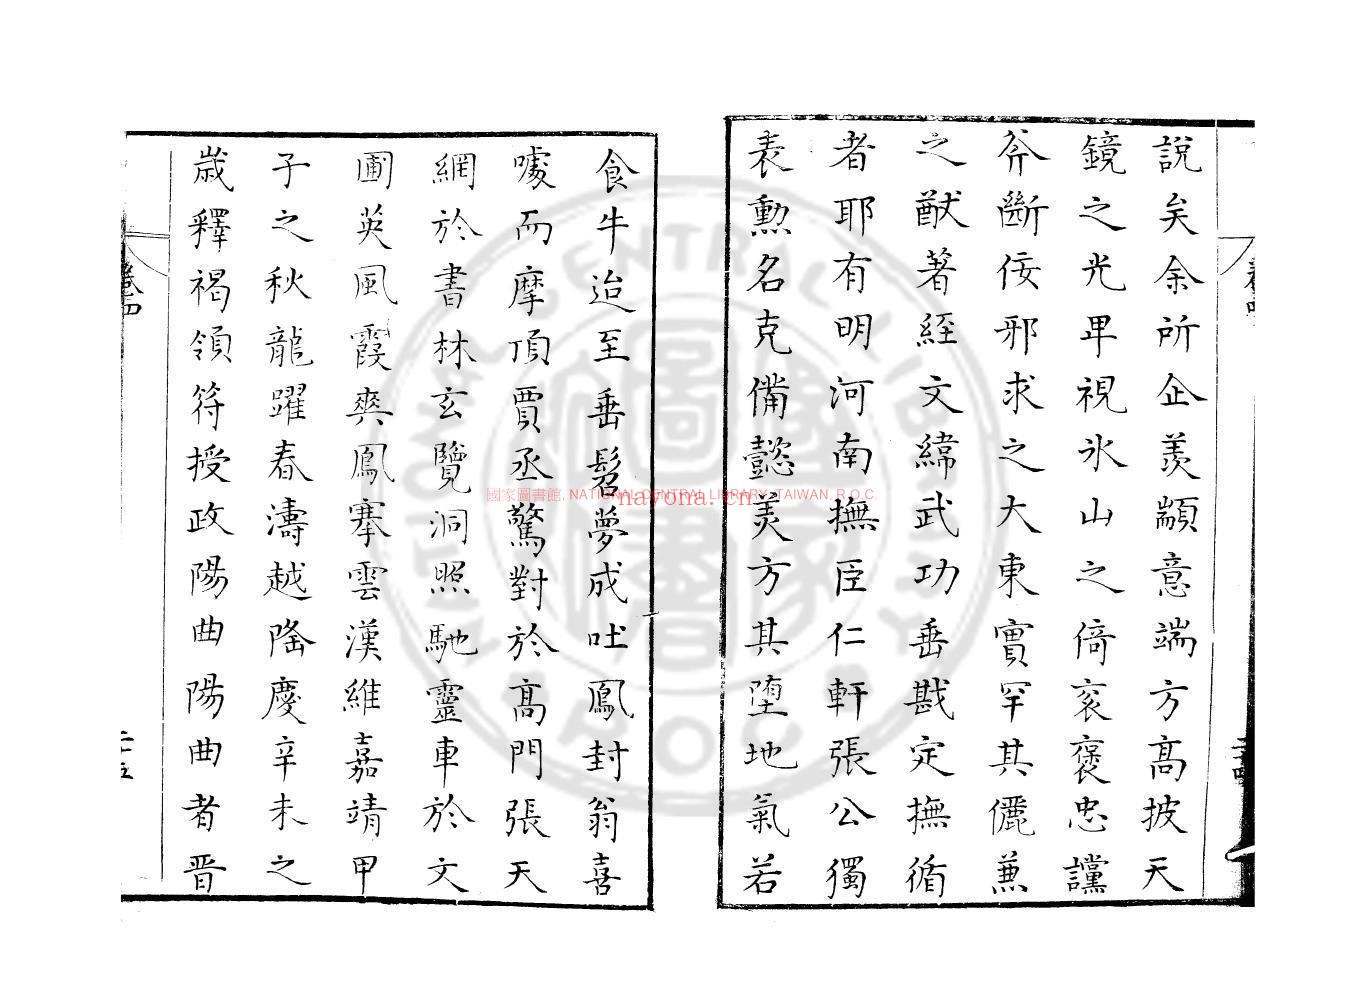 說矣余所企羨顓意端方高披天
鏡之光卑視氷山之倚衮褒忠讜
斧斷佞邪求之大東實罕其儷兼
之猷著經文緯武功垂戡定撫循
者耶有明河南撫臣仁軒張公獨
表勲名克備懿羙方其堕地氣若
食牛迨至垂髫夢成吐鳳封翁喜
噱而摩頂賈丞驚對於高門張天
網於書林玄覽洞照馳靈車於文
圃英風霞爽鳳搴雲漢維嘉靖甲
子之秋龍躍春濤越隆慶辛未之
歲釋褐領符授政陽曲陽曲者晋
卷四
二十四
卷四
二十五
國家圖書館, NATIONAL CENTRAL LIBRARY, TAIWAN, R.O.C
nayona.cn
NATIONAL CENTRAL LIBRARY
R.O.C
國家圖書